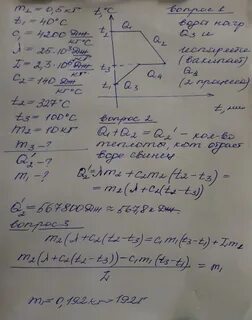 m₂ = 0,5 кг
t₁ = 40°C
c₁ = 4200 Дж/кг°C
λ = 25·10³ Дж/кг
L = 2,3·10⁶ Дж/кг
c₂ = 140 Дж/кг°C
t₂ = 327°C
t₃ = 100°C
m₂ = 10 кг
m₃ - ?
Q₂' - ?
m₁ - ?
t,°C
t₂
t₃
t₁
Q₁
Q₂
Q₄
Q₃
t, мин
вопрос 1
вода нагр
Q₃ и
испаряется
(выкипает)
Q₄
(2 процесса)
вопрос 2
Q₁ + Q₂ = Q₂' - кол-во
теплоты, кот отдаёт
воде свинец
Q₂' = λm₂ + c₂m₂(t₂-t₃) =
= m₂(λ + c₂(t₂-t₃)
Q₂' = 567800 Дж ≈ 567,8 кДж
вопрос 3
m₂(λ + c₂(t₂-t₃) = c₁m₁(t₃-t₁) + Lm₁
m₂(λ + c₂(t₂-t₃)) - c₁m₁(t₃-t₁) = m₁
L
m₁ = 0,192 кг = 192 г